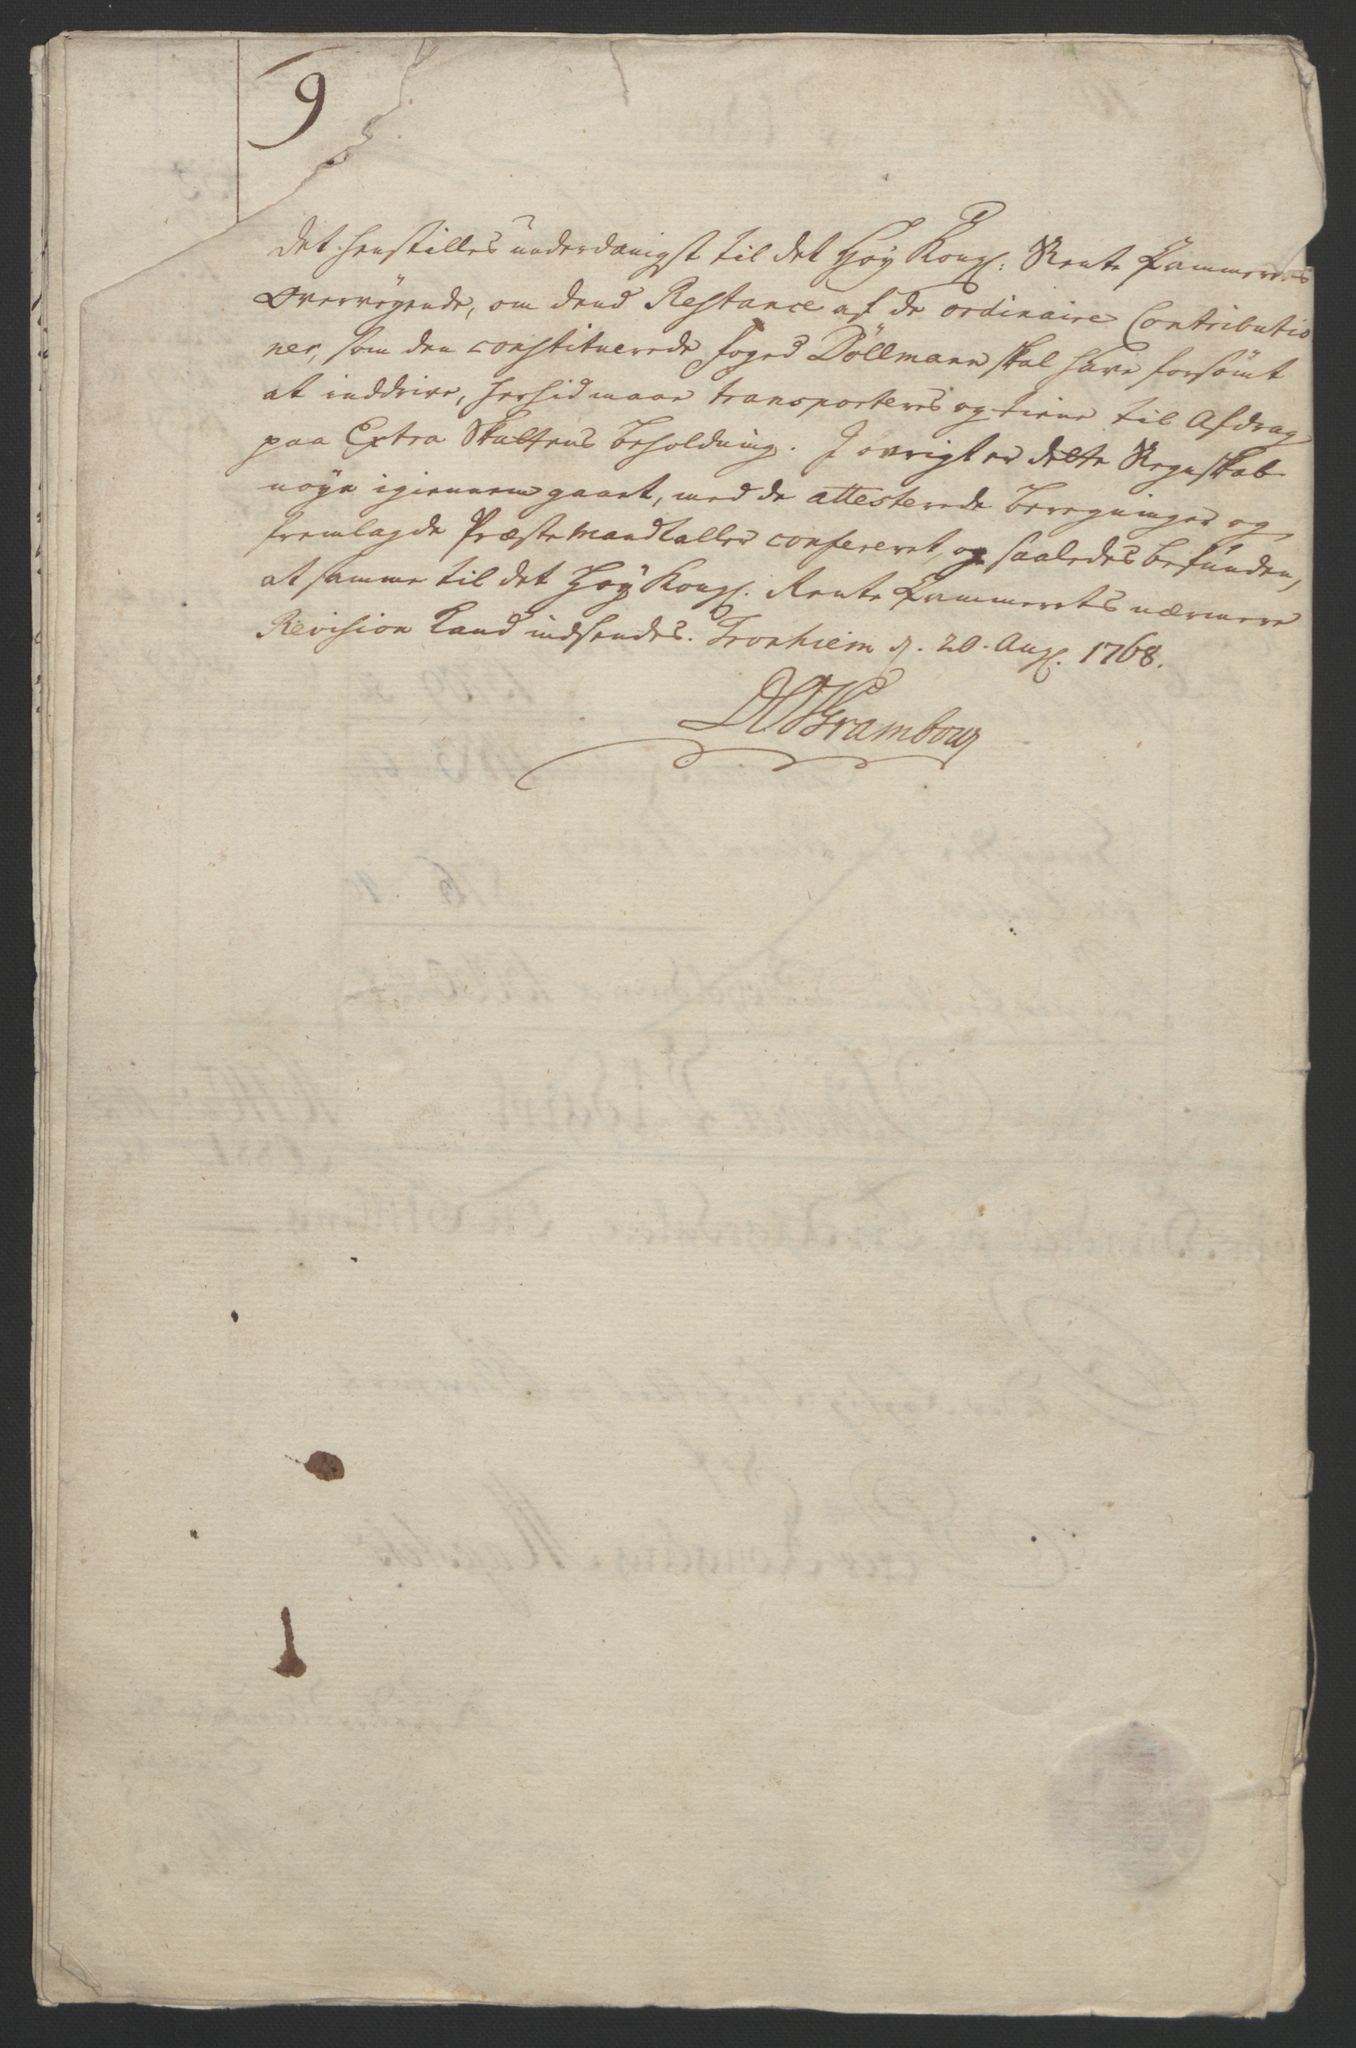 9
Det henstilles underdanigst til det Høy Kongl: Rente Kammerets
Overveyende, om dend Restance af de ordinaire Contributio
ner, som den constituerede Foged Döllmann skal have forsømt
at inddrive, herhid maae transporteres og tiene til Afdrag
paa Extra Skattens beholdning. I øvrigt er dette Regnskab
nøye igiennemgaaet, med de attesterede beregninger og
fremlagde Præste Mandtaller confereret, og saaledes befunden,
at samme til det Høy Kongl. Rente Kammerets nærmere
Revision kand indsendes. Tronhiem d. 20. Aug. 1768.